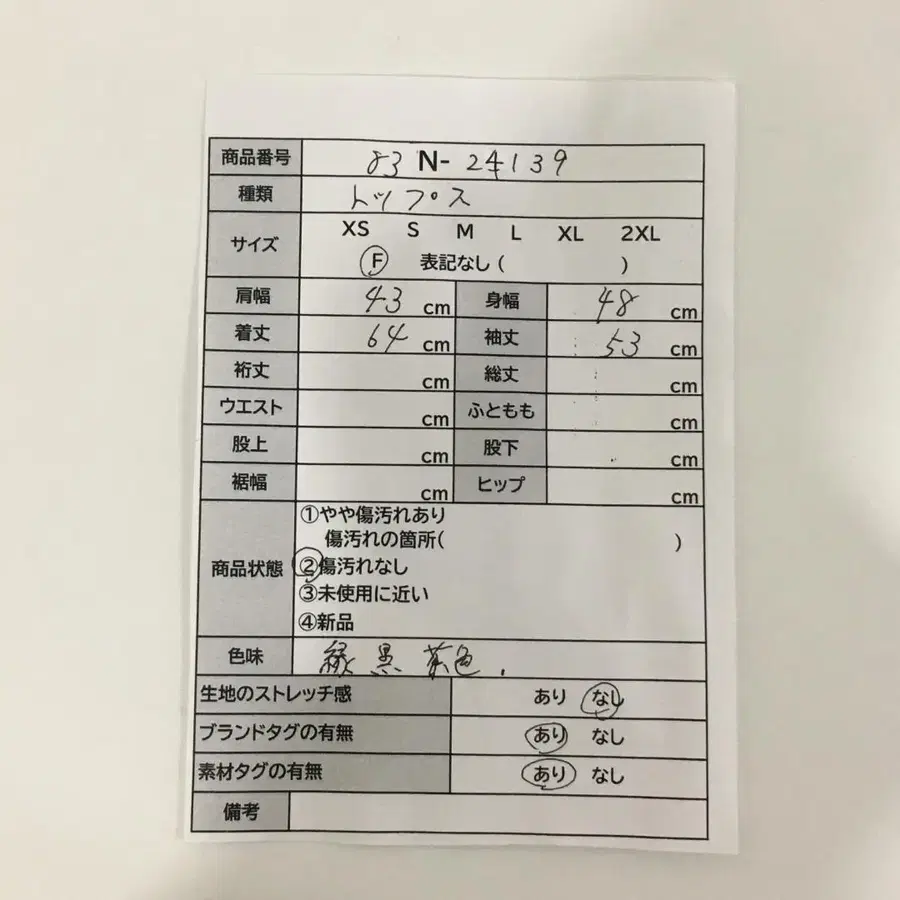 商品番号 83 N- 24139
種類 トップス
サイズ XS S M L XL 2XL
F 表記なし ( )
肩幅 43 cm 身幅 48 cm
着丈 64 cm 袖丈 53 cm
裄丈 cm 総丈 cm
ウエスト cm ふともも cm
股上 cm 股下 cm
裾幅 cm ヒップ cm
商品状態 ①やや傷汚れあり
傷汚れの箇所( )
②傷汚れなし
③未使用に近い
④新品
色味 緑 黒 茶色.
生地のストレッチ感 あり なし
ブランドタグの有無 あり なし
素材タグの有無 あり なし
備考